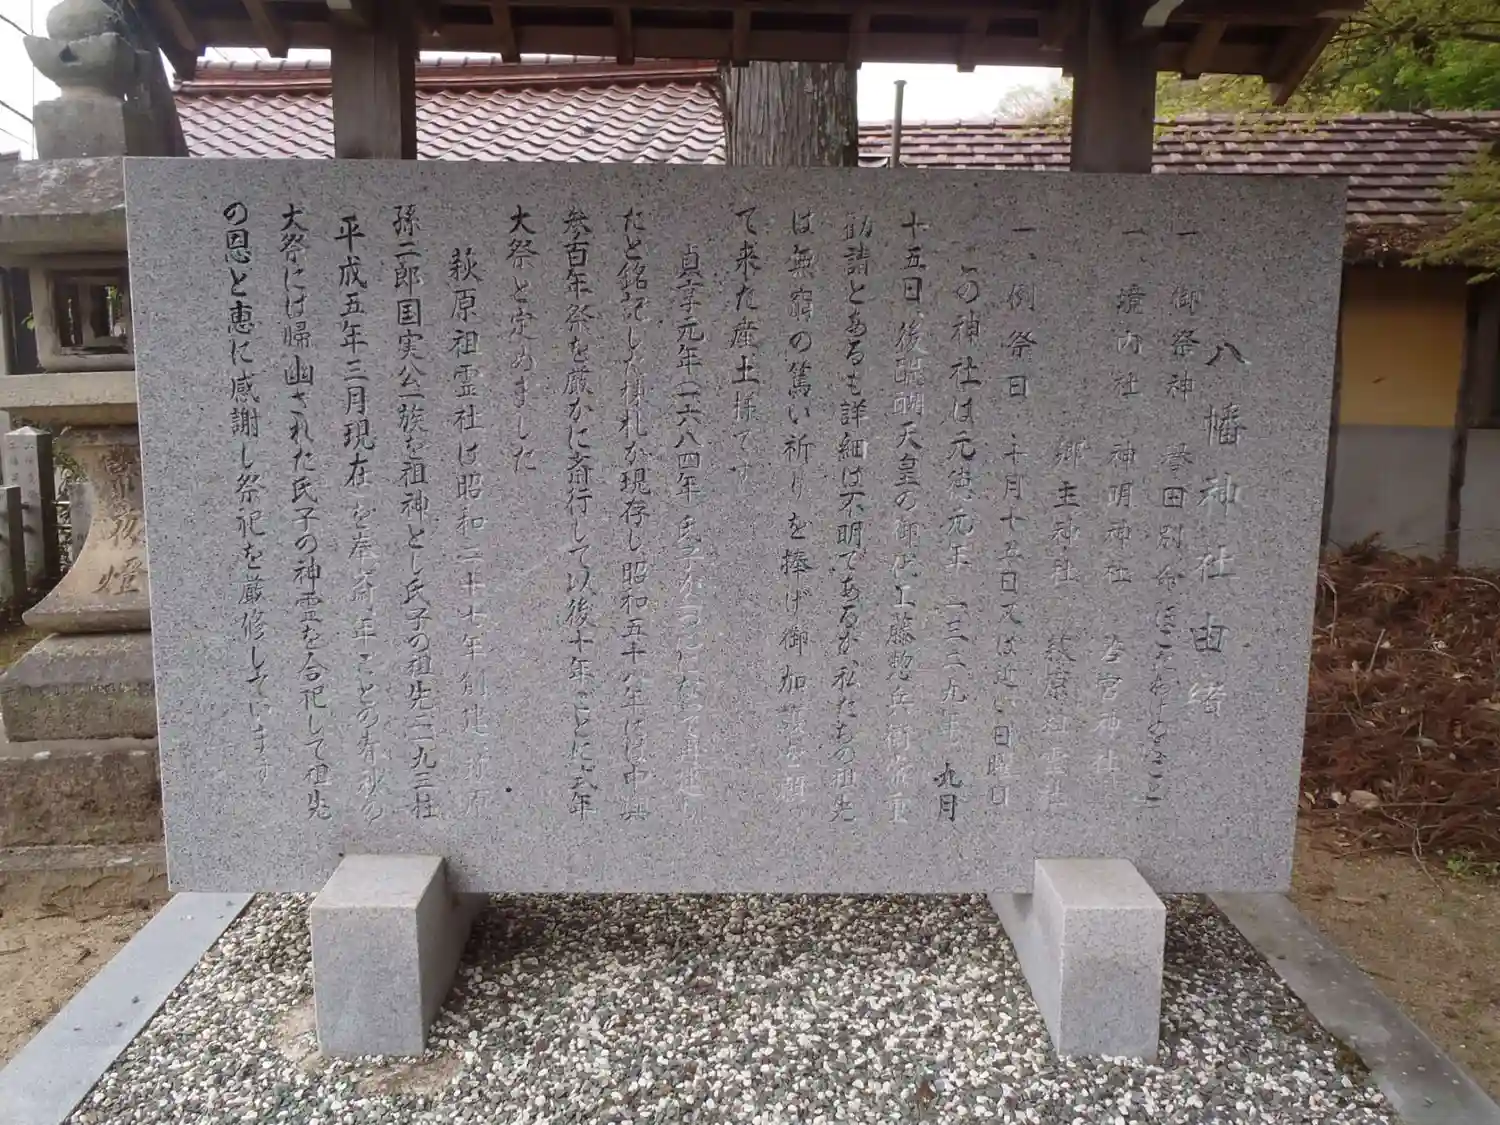 八幡神社由緒
一、御祭神 誉田別命ほこたわけのみこと
一、境内社 神明神社 若宮神社
郷主神社 萩原祖霊社
一、例祭日 十月十五日又は近い日曜日
この神社は元徳元年(一三二九年)九月
十五日、後醍醐天皇の御代工藤惣兵衛常重
勧請とあるも詳細は不明であるが私たちの祖先
は無窮の篤い祈りを捧げ御加護を頂い
て来た産土様です
貞享元年(一六八四年)氏子が一つになって再建し
たと銘記した棟札が現存し昭和五十八年には中興
参百年祭を厳かに斎行して以後十年ごとに式年
大祭と定めました
萩原祖霊社は昭和三十七年創建 萩原
孫二郎国実公一族を祖神とし氏子の祖先二一九三柱
平成五年三月現在 を奉斎 年ごとの春秋の
大祭には帰幽された氏子の神霊を合祀して祖先
の恩と恵に感謝し祭祀を厳修しています
夜燈